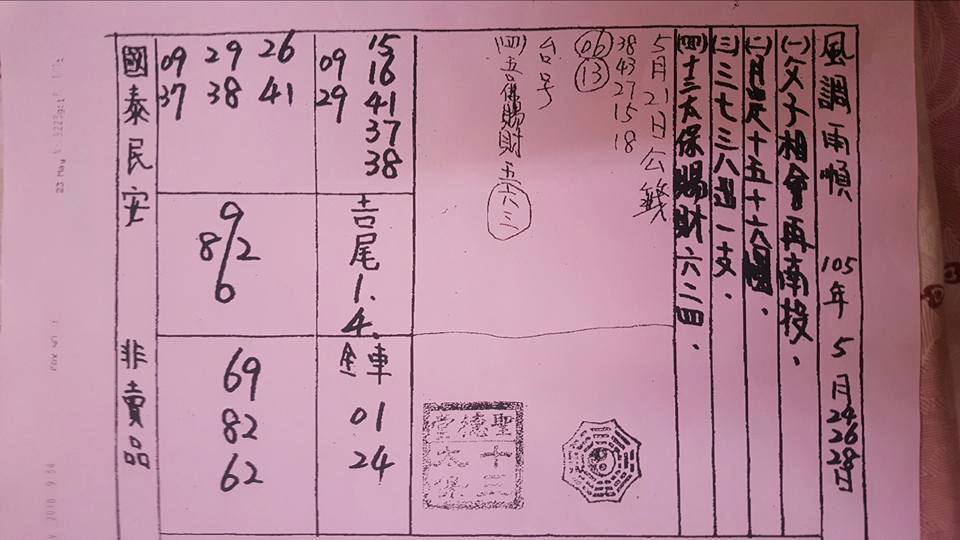 風調雨順 105年 5月24 26 28日
(一)父子相會再南投、
十五十六
(三)三七三八出一支、
(四)十三太保賜財六二四、
5月21日公錢
38 43 27 15 18
06 13
台号
(四)吉保賜財五六三
15 16 41 37 38
09 29
26 41
29 38
09 37
吉尾1.4.
9
8/2
6
車 01 24
69
82
62
聖德堂
十三太保
國泰民安 非賣品